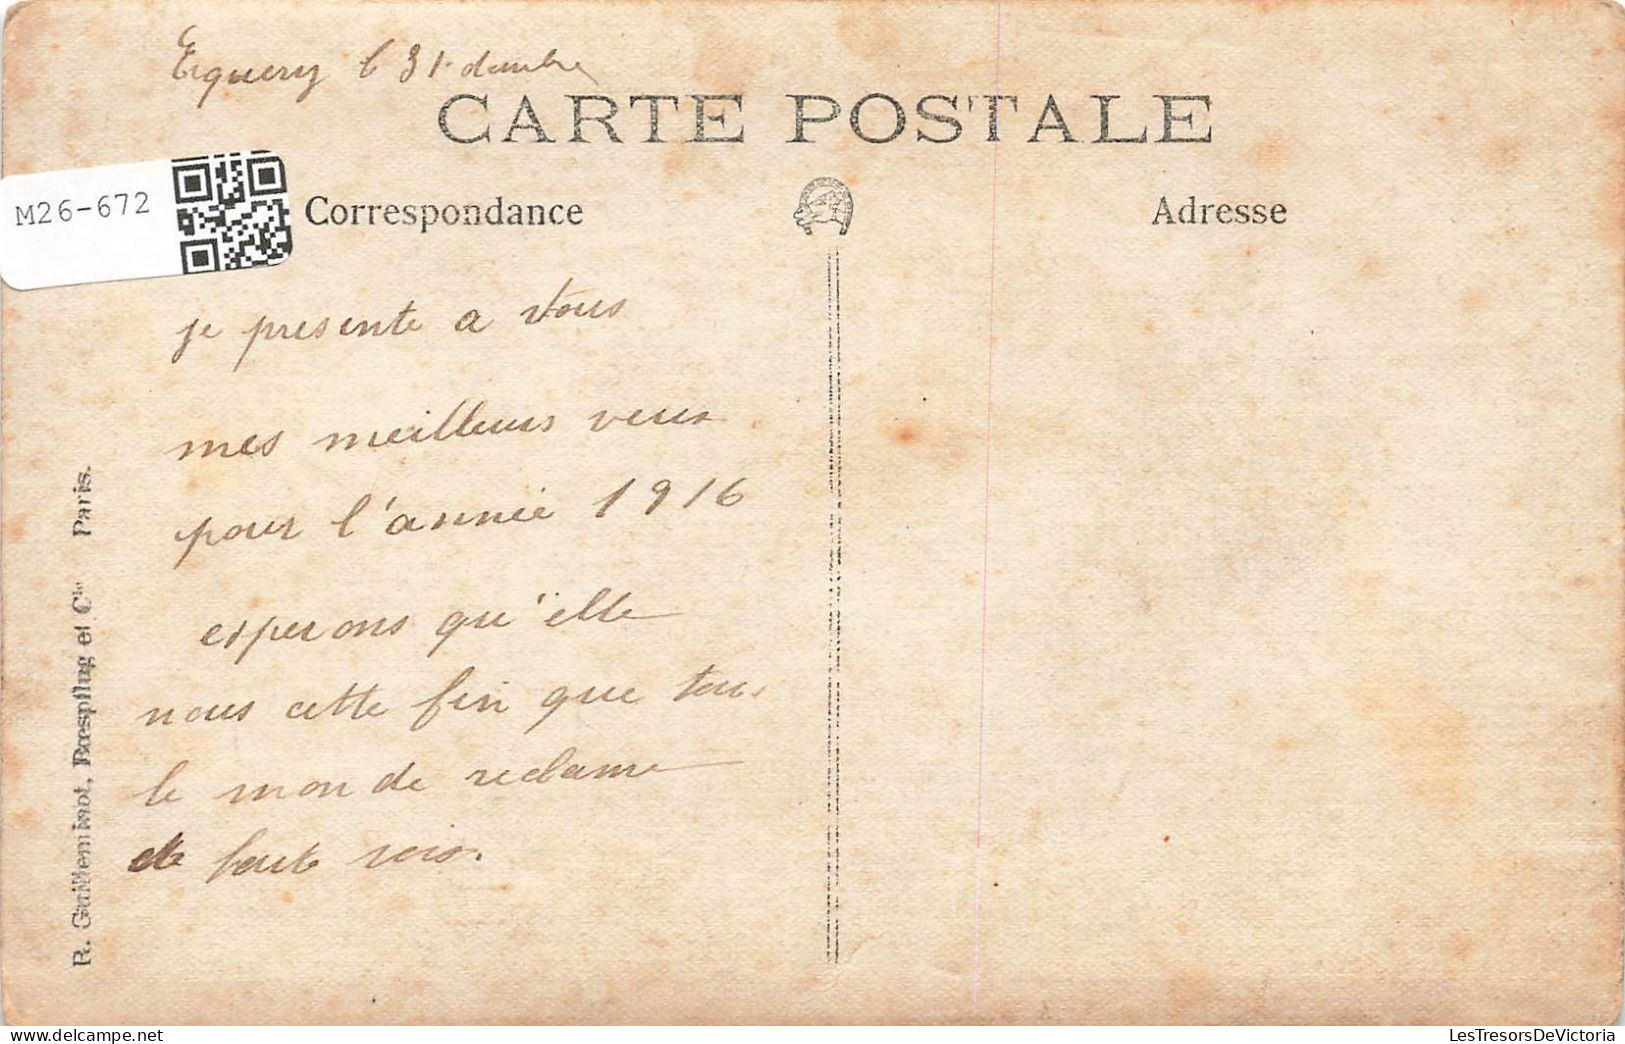 le 31 decembre
CARTE POSTALE
M26-672
Correspondance
Adresse
je presente a Vous
mes meilleurs veux
pour l'année 1916
esperons qu'elle
nous cette fin que tous
le monde reclame
de voix.
R. Guilleminot, Bœspflug et Cie Paris.
delcampe.net
LesTresorsDeVictoria